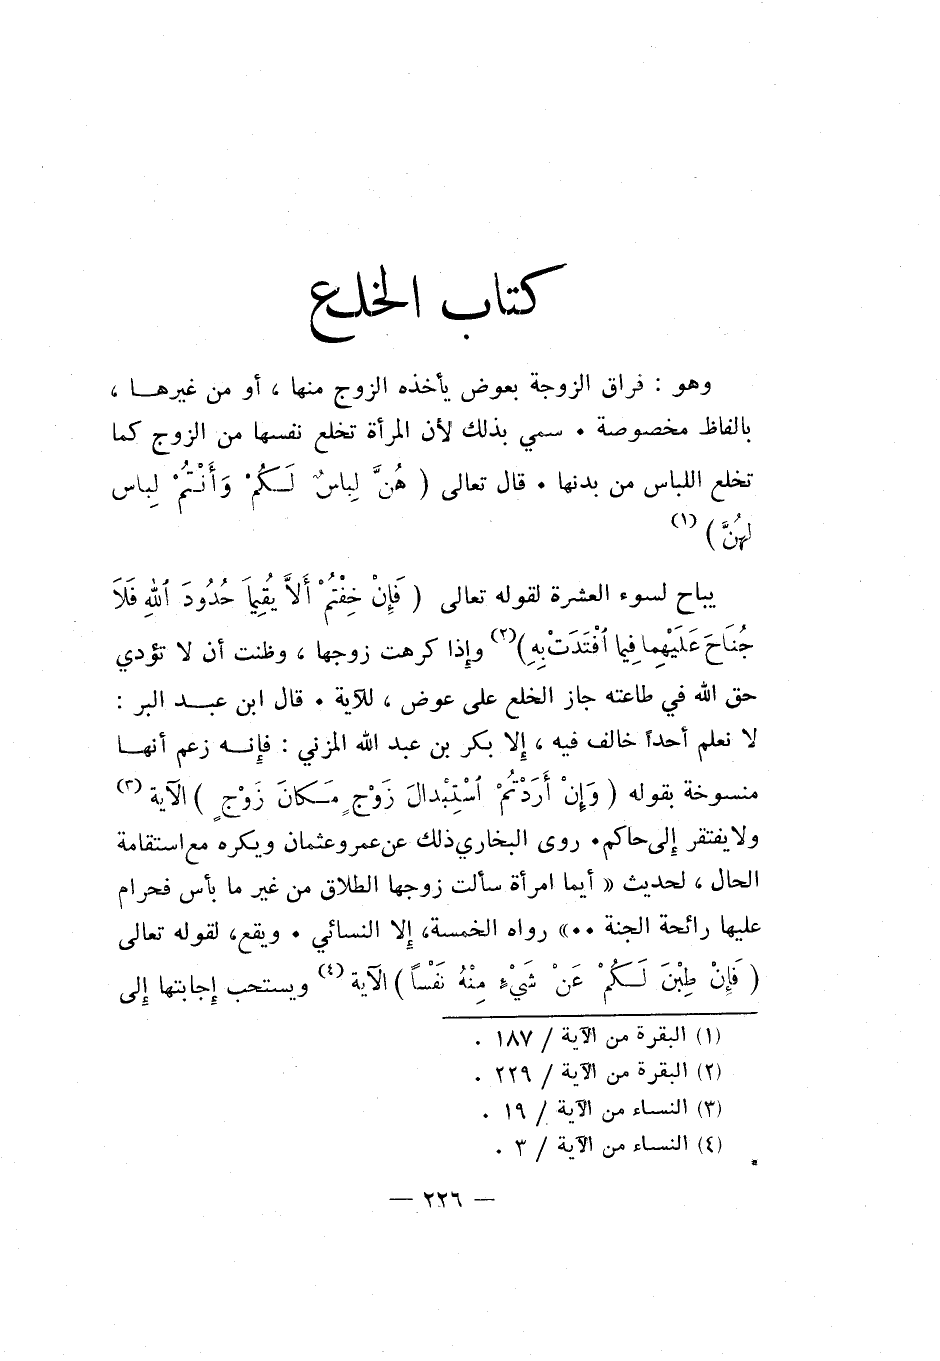 كتاب الخلع
وهو : فراق الزوجة بعوض يأخذه الزوج منها ، أو من غيرهـــا ،
بالفاظ مخصوصة . سمي بذلك لأن المرأة تخلع نفسها من الزوج كما
تخلع اللباس من بدنها . قال تعالى ( هُنَّ لِباسٌ لَـكُمْ وَأَنْـتُمْ لِباس
لهُنَّ ) (١)
يباح لسوء العشرة لقوله تعالى ( فَإِنْ خِفْتُمْ أَلاَّ يُقِيما حُدُودَ ٱللهِ فَلاَ
جُنَاحَ عَلَيْهِما فِيما ٱفْتَدَتْ بِهِ ) (٢) وإذا كرهت زوجها ، وظنت أن لا تؤدي
حق الله في طاعته جاز الخلع على عوض ، للآية . قال ابن عبـــد البر :
لا نعلم أحداً خالف فيه ، إلا بكر بن عبد الله المزني : فإنـــه زعم أنهـــا
منسوخة بقوله ( وَإِنْ أَرَدْتُمْ ٱسْتِبْدالَ زَوْجٍ مَـكانَ زَوْجٍ ) الآية (٣)
ولا يفتقر إلى حاكم . روى البخاري ذلك عن عمر وعثمان ويكره مع استقامة
الحال ، لحديث « أيما امرأة سألت زوجها الطلاق من غير ما بأس فحرام
عليها رائحة الجنة .. » رواه الخمسة، إلا النسائي . ويقع، لقوله تعالى
( فَإِنْ طِبْنَ لَـكُمْ عَنْ شَيْءٍ مِنْهُ نَفْساً ) الآية (٤) ويستحب إجابتها إلى
(١) البقرة من الآية / ١٨٧ .
(٢) البقرة من الآية / ٢٢٩ .
(٣) النساء من الآية / ١٩ .
(٤) النساء من الآية / ٣ .
— ٢٢٦ —